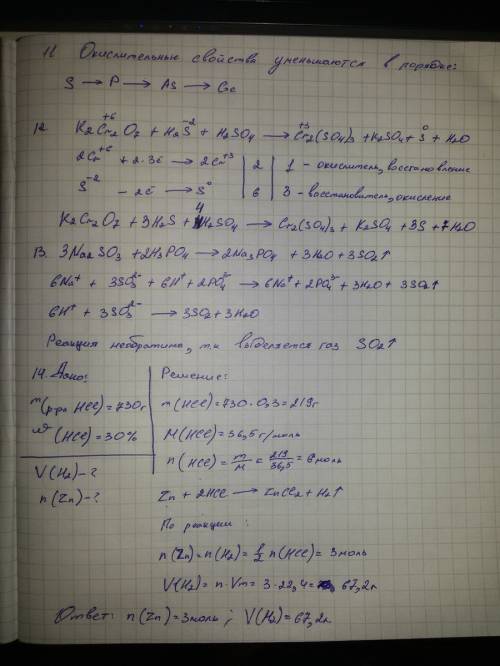 11 Окислительные свойства уменьшаются в порядке:
S → P → As → Ge
12. K2Cr2O7 + H2S + H2SO4 → Cr2(SO4)3 + K2SO4 + S + H2O
+6 -2 +3 0
2Cr+6 + 2·3e → 2Cr+3 | 2 | 1 - окислитель, восстановление
S-2 - 2e → S0 | 6 | 3 - восстановитель, окисление
K2Cr2O7 + 3H2S + 4H2SO4 → Cr2(SO4)3 + K2SO4 + 3S + 7H2O
13. 3Na2SO3 + 2H3PO4 → 2Na3PO4 + 3H2O + 3SO2↑
6Na+ + 3SO3 2- + 6H+ + 2PO4 3- → 6Na+ + 2PO4 3- + 3H2O + 3SO2↑
6H+ + 3SO3 2- → 3SO2 + 3H2O
Реакция необратима, т.к выделяется газ SO2↑
14. Дано:
m(р-ра HCl) = 730г
w(HCl) = 30%
V(H2) - ?
n(Zn) - ?
Решение:
m(HCl) = 730·0,3 = 219г
M(HCl) = 36,5 г/моль
n(HCl) = m/M = 219/36,5 = 6 моль
Zn + 2HCl → ZnCl2 + H2↑
По реакции:
n(Zn) = n(H2) = 1/2 n(HCl) = 3 моль
V(H2) = n·Vm = 3·22,4 = 67,2л
Ответ: n(Zn) = 3 моль; V(H2) = 67,2л